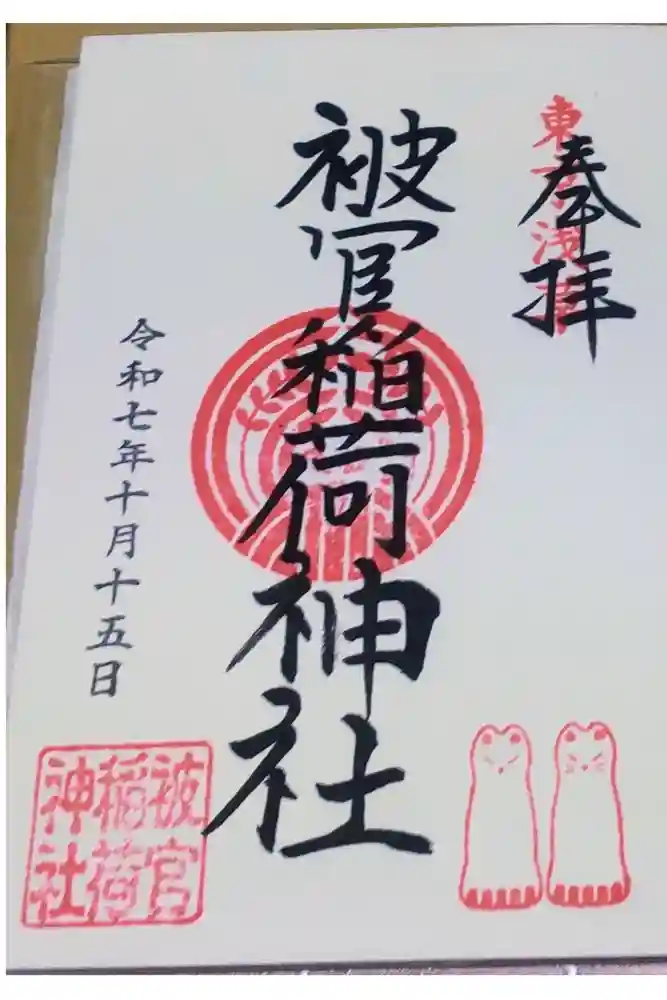 東京浅草
奉拝
被官稲荷神社
令和七年十月十五日
被官
稲荷
神社